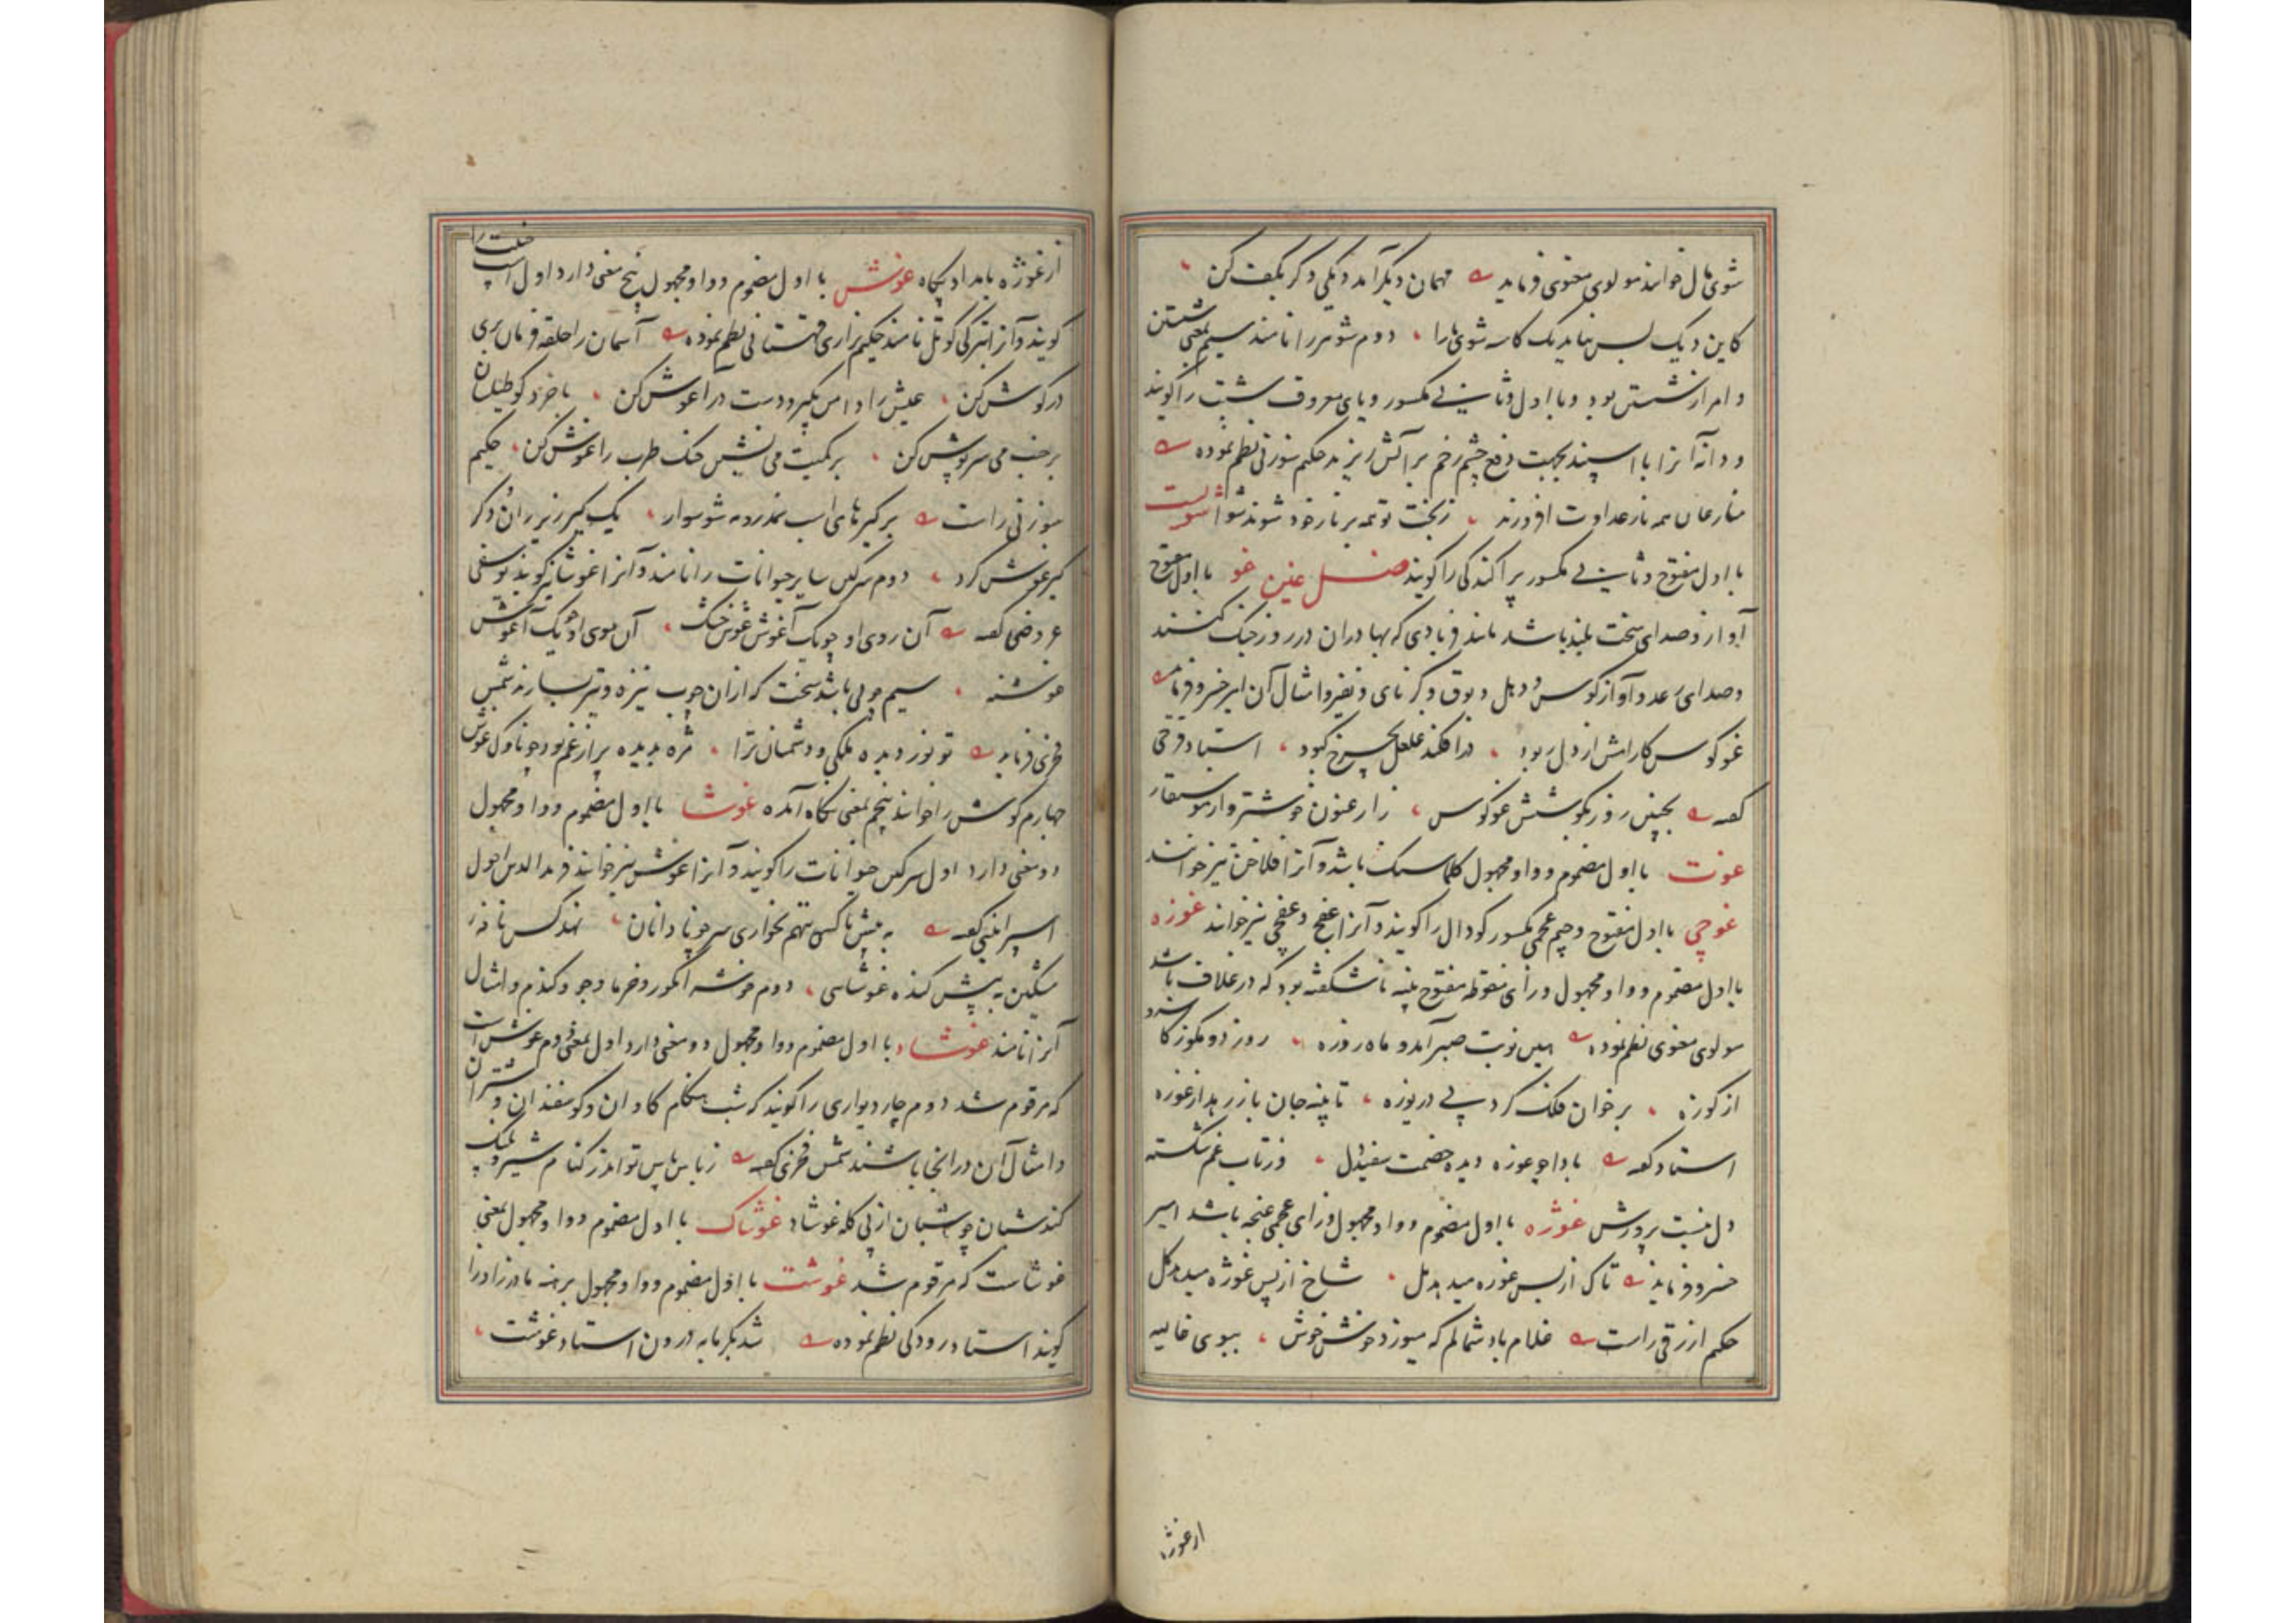 شوی مال خوانند مولوی معنوی فرماید مهمان دیگر آمد دیگی دگر بکف کن
کاین دیک بس نیاید یک کاسه شوی ما را دوم شوهر را نامند سیم بمعنی شستن
و امر از شستن بود و با اول و ثانی مکسور و یای معروف شبت را گویند
و دانه آنرا با اسپند بجهت دفع چشم زخم بر آتش ریزند حکیم سوزنی نظم نموده
منازعان همه نار عداوت افروزند ز بخت تو همه بر نار خود شوند شوا شولیت
با اول مفتوح و ثانی مکسور پراکندگی را گویند فصل غین غو با اول مفتوح
آواز و صدای سخت بلند باشد مانند فریادی که بهادران در روز جنک کنند
و صدای رعد و آواز کوس و دهل و بوق و کرنای و نفیر و امثال آن امیر خسرو فرماید
غو کوس کارامش از دل ربود در افکند غلغل بچرخ کبود استاد فرخی
گفته بچنین روز بگوشش غو کوس ز ارغنون خوشتر و از موسیقار
غوت با اول مضموم و واو مجهول کلاسنک باشد و آنرا فلاخن نیز خوانند
غوچی با اول مفتوح و جیم عجمی مکسور گودال را گویند و آنرا غفچ و غفچی نیز خوانند غوزه
با اول مضموم و واو مجهول و زای منقوطه مفتوح پنبه ناشکفته بود که در غلاف باشد
مولوی معنوی نظم نموده همین نوبت صبر آمد و ماه روزه روزی دو مگو ز کاسه و
از کوزه بر خوان فلک گرد پی دریوزه تا پنبه جان باز رهد از غوزه
استاد گفته بادا چو غوزه دیده خصمت سفید دل وز تاب غم شکسته
دل نیست پرورش غوژه با اول مضموم و واو مجهول و زای عجمی غنچه باشد امیر
خسرو فرماید تاک از پس غوره میدهد مل شاخ از پس غوژه میدهد گل
حکیم ازرقی راست غلام باد شمالم که میوزد خوش خوش ببوی غالیه
از غوژه
از غوژه بامداد پگاه غوش با اول مضموم و واو مجهول پنج معنی دارد اول اسپ جنیبت را
گویند و آنرا بترکی کوتل نامند حکیم نزاری قهستانی نظم نموده آسمان را حلقه فرمان بری
در گوش کن عیش را دامن بگیر و دست در آغوش کن با خرد گو طیلسان
بر خنب می سرپوش کن بر کمیت می نشین خنک طرب را غوش کن حکیم
سوزنی راست بر کیرهای اسب نمد ده شو سوار یک کیر زیر ران و دگر
کیر غوش کرد دوم سرگین سایر حیوانات را نامند و آنرا غوشای نیز گویند یوسفی
عروضی گفته آن روی او چو یک آغوش غوش خشک آن موی او چو یک آغوش
غوشنه سیم چوبی باشد سخت که از آن چوب نیزه و تیر سازند شمس
فخری فرماید تو نور دیده ملکی و دشمنان ترا مژه بدیده پر از غم بود چو ناوک غوش
چهارم گوش را خوانند پنجم بمعنی نگاه آمده غوشا با اول مضموم و واو مجهول
دو معنی دارد اول سرگین حیوانات را گویند و آنرا غوش نیز خوانند فریدالدین احول
اسفراینی گفته به پیش ناکس ننهم بخواری سر چو نادانان نهد کس نافه
مشکین به پیش گنده غوشایی دوم خوشه انگور و خرما و جو و گندم و امثال
آنرا نامند غوشاد با اول مضموم و واو مجهول دو معنی دارد اول بمعنی دوم غوش است
که مرقوم شد دوم چار دیواری را گویند که شب هنگام گاوان و گوسفندان و شتران
و امثال آن در آنجا باشند شمس فخری گفته ز پاس تو اندر کنام شیر و پلنک
کند شبان چو شبان از پی گله غوشاد غوشاک با اول مضموم و واو مجهول بمعنی
غوشاست که مرقوم شد غوشت با اول مضموم و واو مجهول برهنه مادرزاد را
گویند استاد رودکی نظم نموده شد بگرمابه درون استاد غوشت